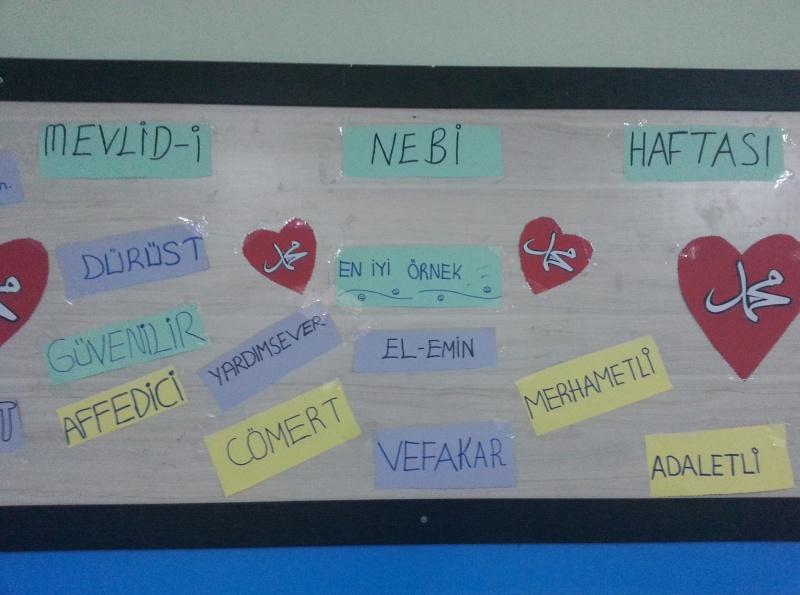 MEVLİD-İ NEBİ HAFTASI
DÜRÜST
EN İYİ ÖRNEK
GÜVENİLİR
YARDIMSEVER
EL-EMİN
AFFEDİCİ
CÖMERT
VEFAKAR
MERHAMETLİ
ADALETLİ
محمد
محمد
محمد